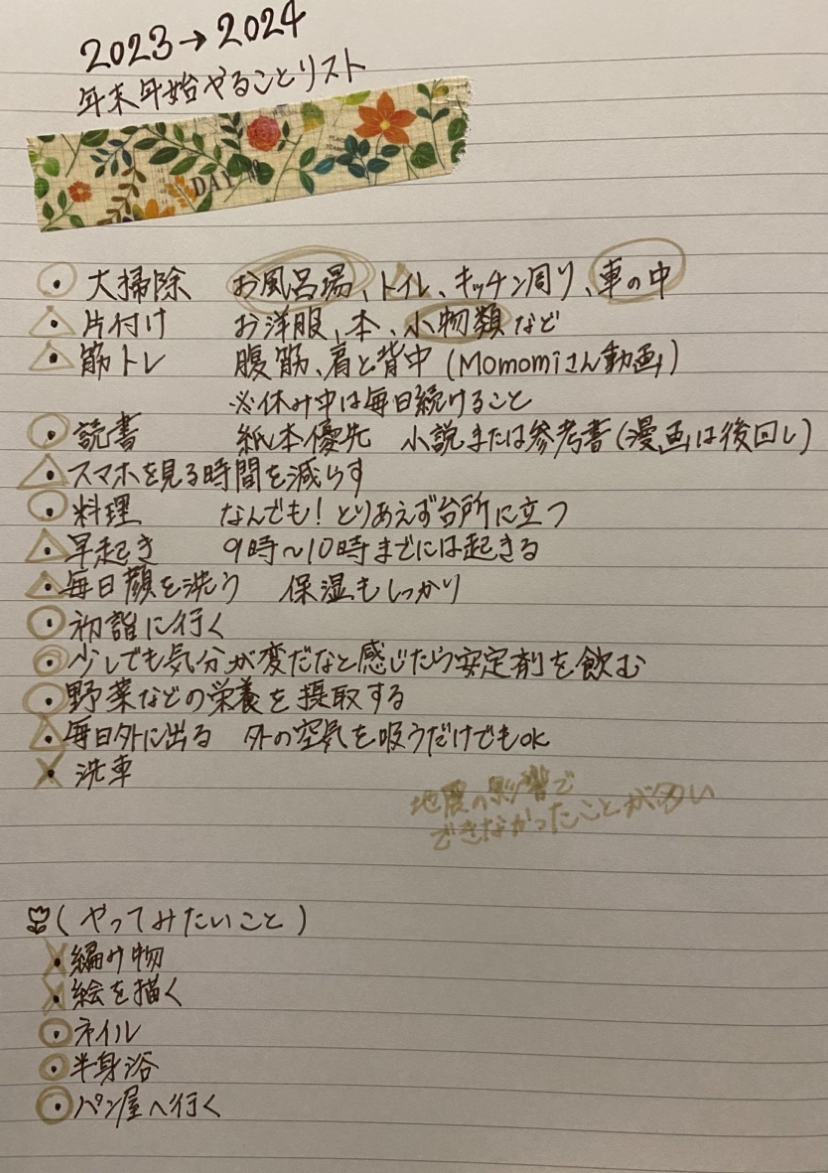 2023→2024
年末年始やることリスト
DAY
・大掃除 お風呂場、トイレ、キッチン周り、車の中
・片付け お洋服、本、小物類など
・筋トレ 腹筋、肩と背中(Momomiさん動画)
※休み中は毎日続けること
・読書 紙本優先 小説または参考書(漫画は後回し)
・スマホを見る時間を減らす
・料理 なんでも!とりあえず台所に立つ
・早起き 9時〜10時までには起きる
・毎日顔を洗う 保湿もしっかり
・初詣に行く
・少しでも気分が変だなと感じたら安定剤を飲む
・野菜などの栄養を摂取する
・毎日外に出る 外の空気を吸うだけでもOK
・洗車
地震の影響で
できなかったことが多い
(やってみたいこと)
・編み物
・絵を描く
・ネイル
・半身浴
・パン屋へ行く